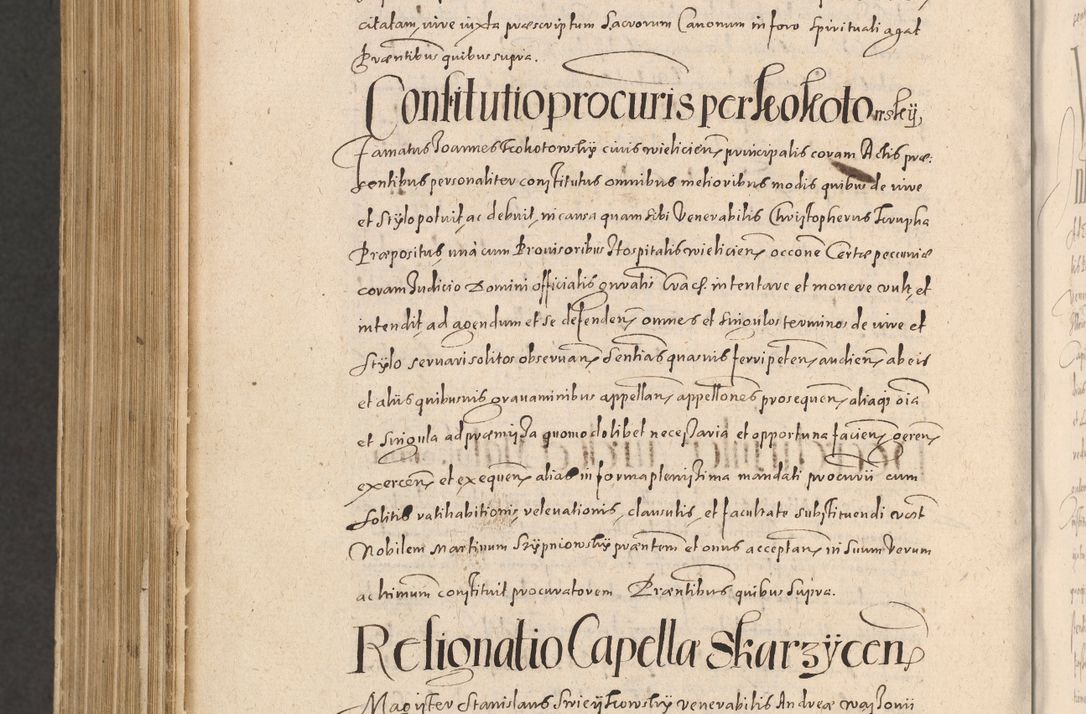 citatam, vive iuxta præscriptum Sacrorum Canonum in foro Spirituali agat
Præntibus quibus supra.
Constitutio procuris per Kokotorskÿ
Famatus Joannes Kokotowskÿ civis wielicien principalis coram Actis præ:
sentibus personaliter constitutus omnibus melioribus modis quibus de iure
et stÿlo potuit, ac debuit, in causa quam sibi Venerabilis Christopherus Trupha
Præpositus, una cum Provisoribus Hospitalis wielicien occone Certæ pecuniæ
coram Judicio Domini officialis gnralis Crac. intentare et monere vult, et
intendit, ad agendum et se defenden omnes et singulos terminos de iure et
stÿlo servari solitos observan, Sentias quasvis ferri peten, audien, ab eis
et aliis quibusvis gravaminibus appellan, appellones prosequen, aliaq oia
et singula ad præmissa quomodolibet necessaria et opportuna facien, geren
exercen, et exequen, alias in forma plenissima mandati procurii cum
solitis ratihabitionis, relevationis, clausulis, et facultate substituendi
Nobilem Martinum Skrzÿpniowskÿ præntem et onus acceptan, in suum Verum
ac ltimum constituit procuratorem Præntibus quibus supra.
Resignatio Capellæ Skarzÿcen
Magister Stanislaus venerabilis Andreæ